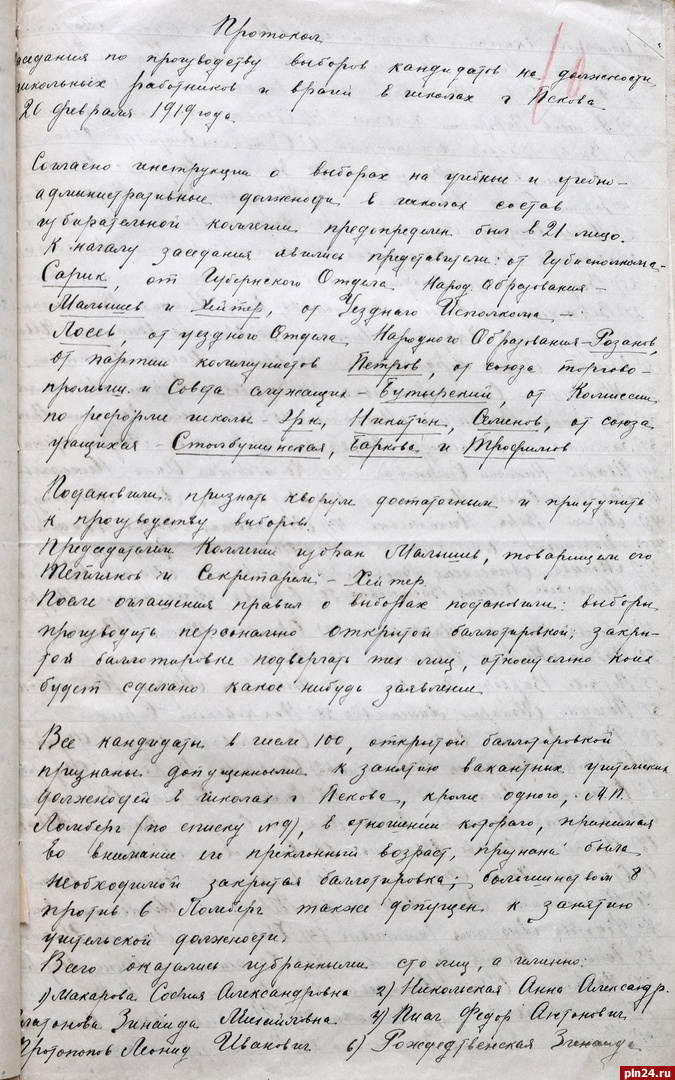 Протокол
заседания по производству выборов кандидатов на должности
школьных работников и врачей в школах г Пскова
20 февраля 1919 года.
Согласно инструкции о выборах на учебные и учебно-
административные должности в школах состав
избирательной коллегии предопределен был в 21 лицо.
К началу заседания явились представители: от Губисполкома-
Сарик, от Губернского Отдела Народ. Образования-
Малышев и Хейтер, от Уездного Исполкома -
Лосев, от уездного Отдела Народного Образования-Розанов,
от партии коммунистов Петров, от союза торгово-
промышл. и Совета служащих - Бутырский, от Комиссии
по реформе школы - Эрн, Никитин, Семенов, от союза
учащихся - Столбушинская, Баркова и Трофимов
Постановили: признать кворум достаточным и приступить
к производству выборов.
Председателем Коллегии избран Малышев, товарищем его
и Секретарем - Хейтер
После оглашения правил о выборах постановили: выборы
производить персонально открытой баллотировкой; закры-
той баллотировке подвергать тех лиц, относительно коих
будет сделано какое нибудь заявление.
Все кандидаты в числе 100, открытой баллотировкой
признаны допущенными к занятию вакантных учительских
должностей в школах г Пскова, кроме одного, М.П.
Ломберг (по списку №9), в отношении которого, принимая
во внимание его преклонный возраст, признана была
необходимой закрытая баллотировка; большинством 8
против 6 Ломберг также допущен к занятию
учительской должности.
Всего оказались избранными сто лиц, а именно:
1) Макарова София Александровна 2) Никольская Анна Александр.
Платонова Зинаида Михайловна 4) Фёдор Антонович
Протопопов Леонид Иванович 6) Рождественская Зинаида
pln24.ru